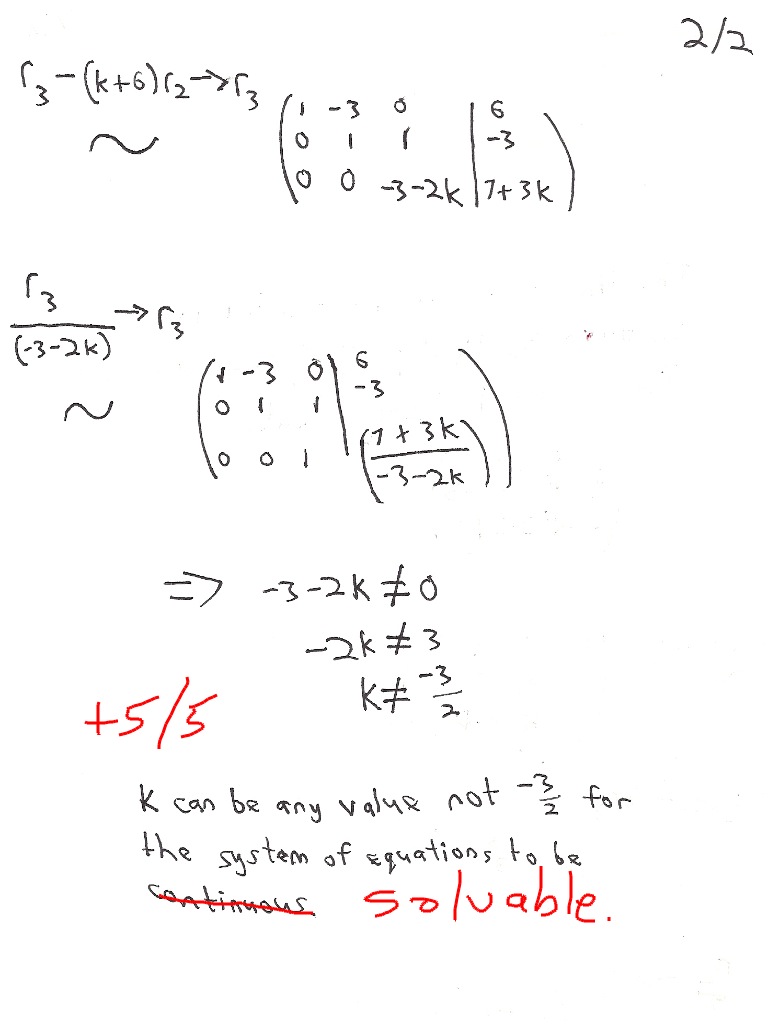 2/2
r₃-(k+6)r₂→r₃
~
( 1 -3 0 | 6 )
( 0 1 1 | -3 )
( 0 0 -3-2k | 7+3k )
r₃/(-3-2k) → r₃
~
( 1 -3 0 | 6 )
( 0 1 1 | -3 )
( 0 0 1 | (7+3k/-3-2k) )
⇒ -3-2k≠0
-2k≠3
k≠-3/2
+5/5
K can be any value not -3/2 for
the system of equations to be
continuous. solvable.